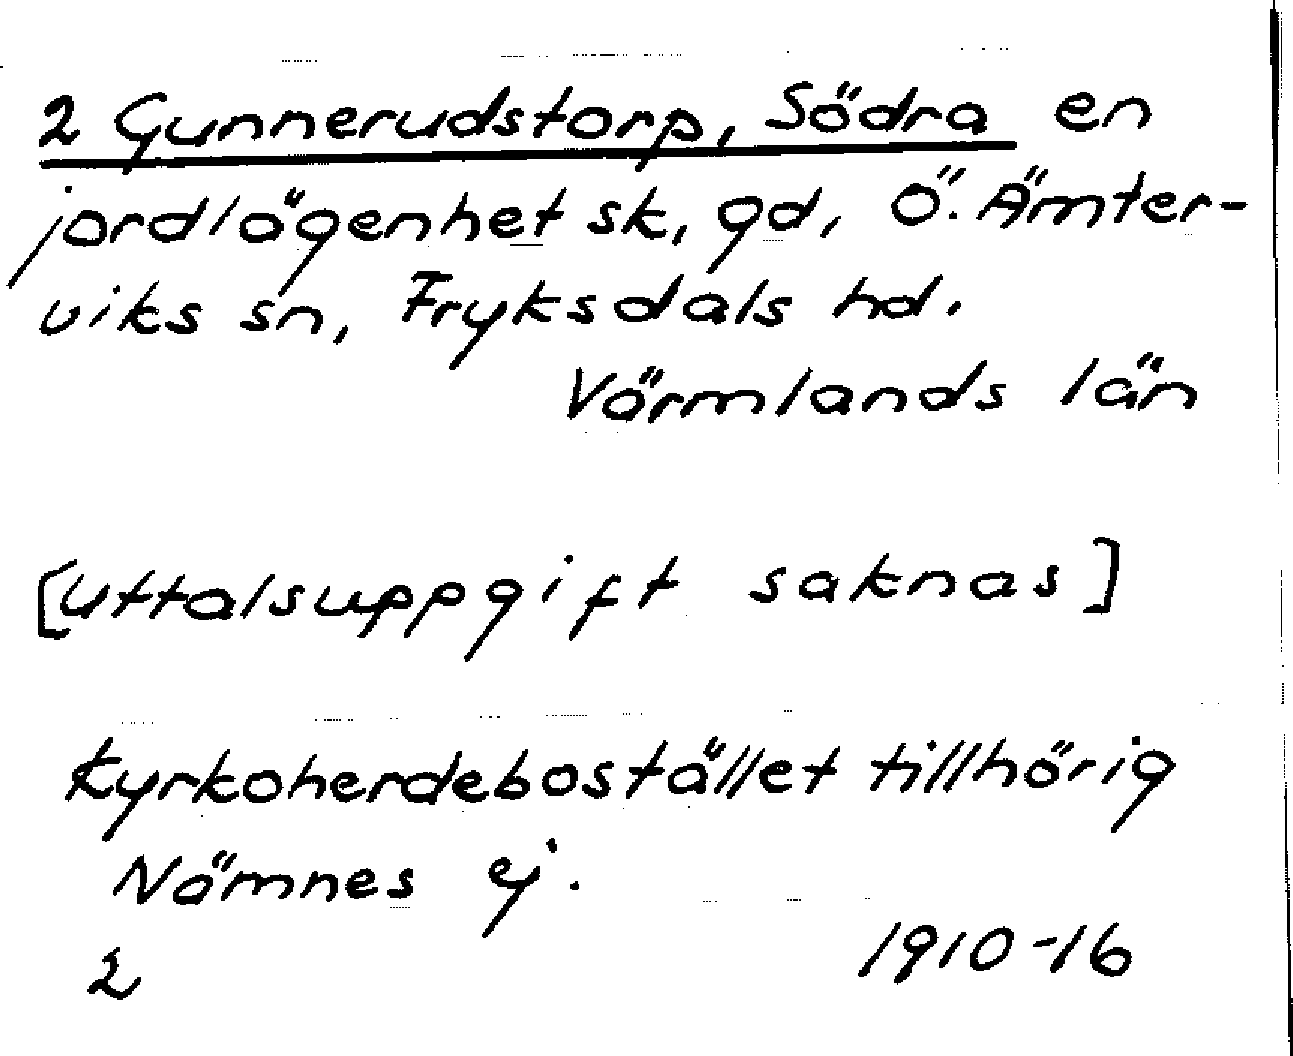 2 Gunnerudstorp, Södra en
jordlägenhet sk, gd, Ö. Ämter-
viks sn, Fryksdals hd.
Värmlands län
[Uttalsuppgift saknas]
Kyrkoherdebostället tillhörig
Nämnes ej.
2 1910-16